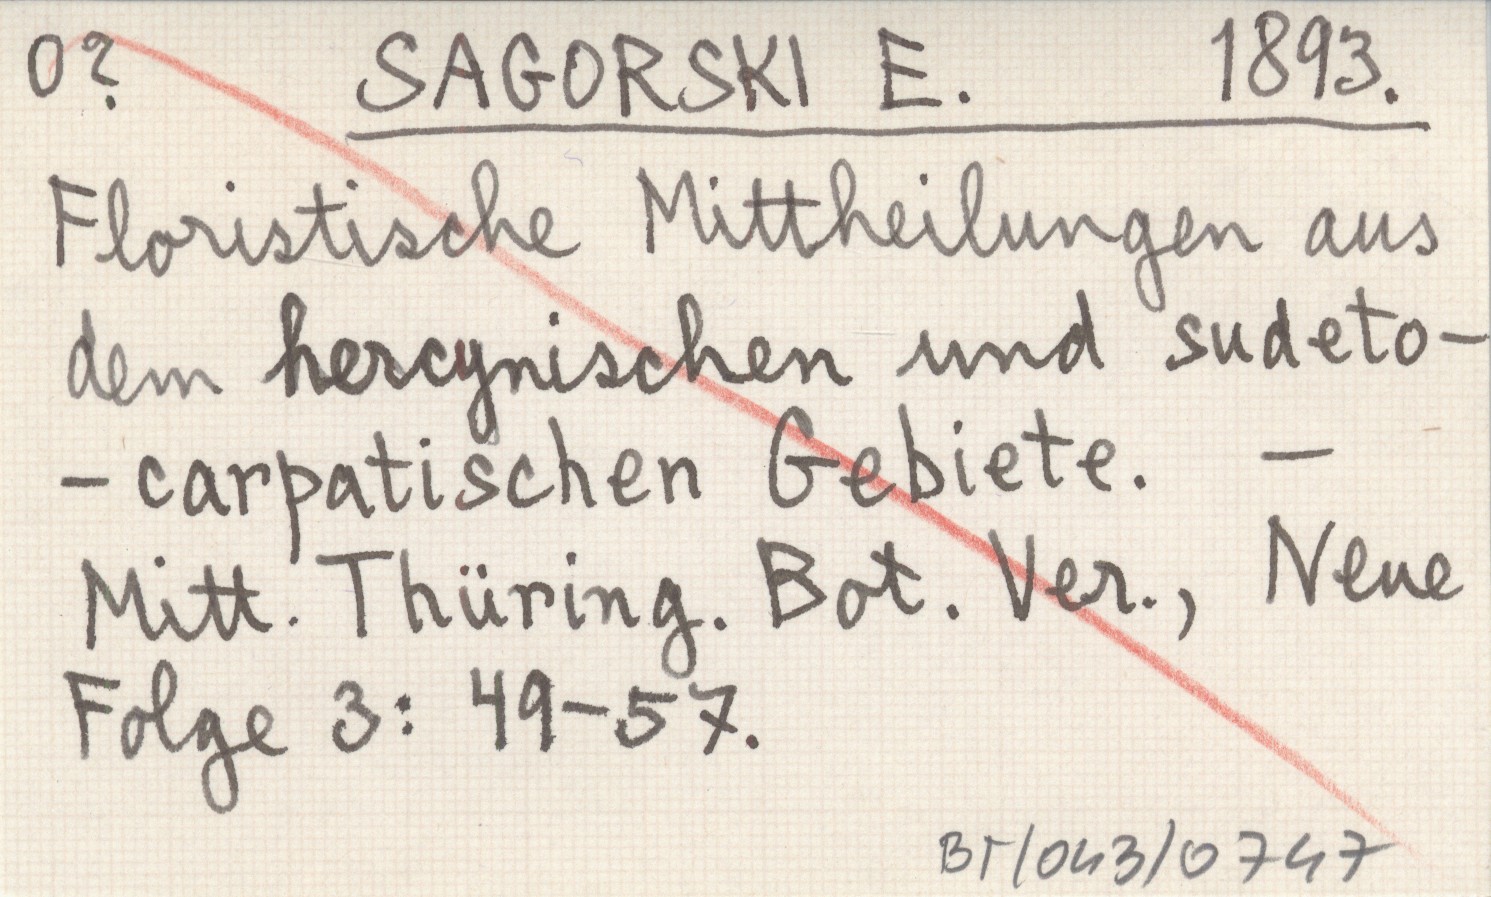 0? SAGORSKI E. 1893.
Floristische Mittheilungen aus
dem hercynischen und sudeto-
-carpatischen Gebiete. —
Mitt. Thüring. Bot. Ver., Neue
Folge 3: 49-57.
BT/043/0747